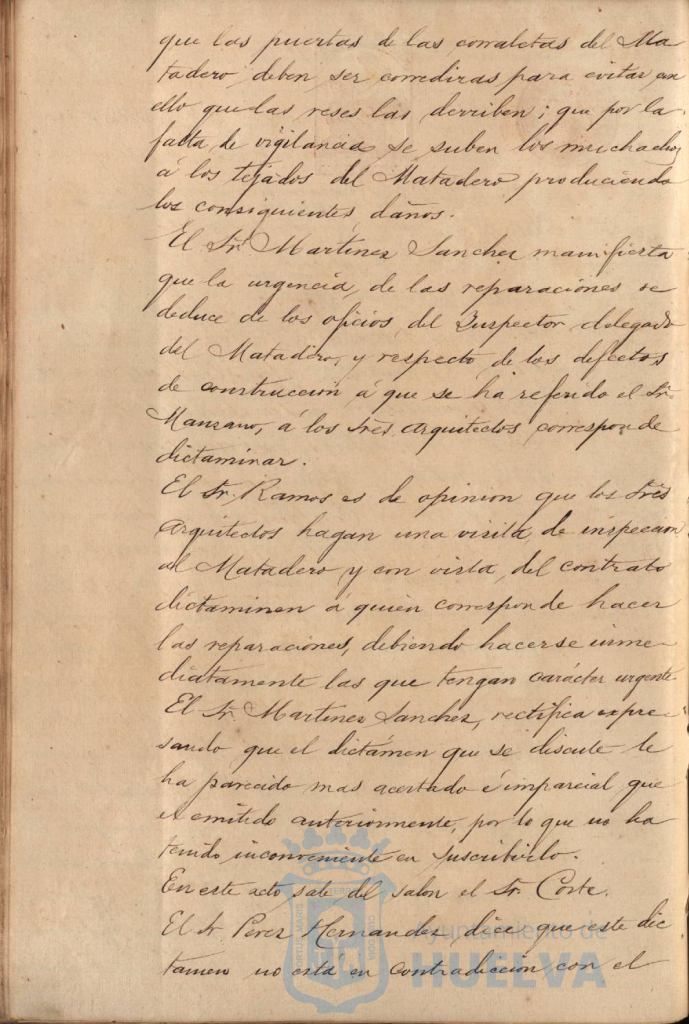 que las puertas de las corraletas del Ma
tadero, deben ser corredizas para evitar con
ello que las reses las derriben; que por la
falta de vigilancia se suben los muchachos
á los tejados del Matadero produciendo
los consiguientes daños.
El Sr. Martinez Sanchez manifiesta
que la urgencia, de las reparaciones se
deduce de los oficios del Inspector delegado
del Matadero, y respecto de los defectos
de construccion á que se ha referido el Sr.
Manzano, á los tres arquitectos corresponde
dictaminar.
El Sr. Ramos es de opinion que los tres
arquitectos hagan una visita de inspeccion
al Matadero y con vista del contrato
dictaminen á quien corresponde hacer
las reparaciones, debiendo hacerse inme
diatamente las que tengan carácter urgente.
El Sr. Martinez Sanchez, rectifica expre
sando que el dictámen que se discute le
ha parecido mas acertado é imparcial que
el emitido anteriormente, por lo que no ha
tenido inconveniente en suscribirlo.
En este acto sale del salon el Sr. Corte.
El Sr. Perez Hernandez, dice que este dic
tamen no está en contradiccion con el
Ayuntamiento de
HUELVA